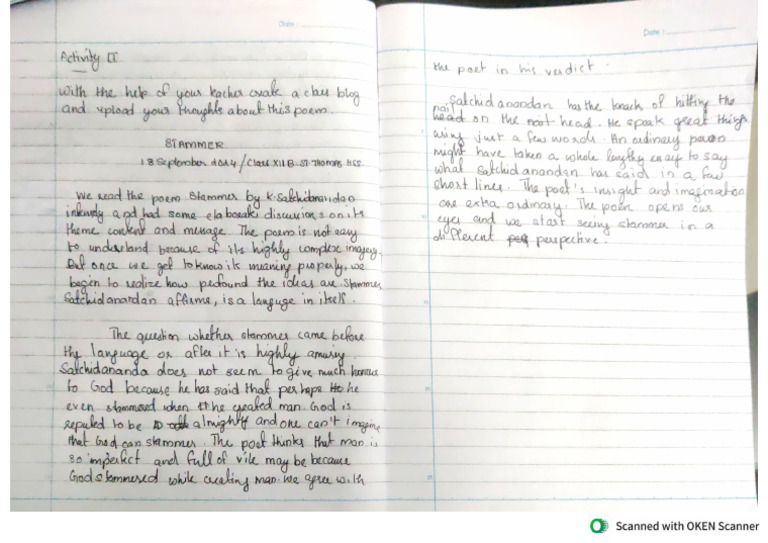 Date :
Activity II
With the help of your teacher create a class blog
and upload your thoughts about this poem.
STAMMER
18 September 2024 / Class XII B. ST. THOMAS HSS
We read the poem Stammer by K. Satchidanandan
intensely and had some elaborate discussions on its
theme content and message. The poem is not easy
to understand because of its highly complex imagery.
But once we get to know its meaning properly, we
begin to realize how profound the ideas are. Stammer,
Satchidanandan affirms, is a languge in itself.
The question whether stammer came before
the language or after it is highly amusing.
Satchidananda does not seem to give much honour
to God because he has said that perhaps he
even stammered when he created man. God is
reputed to be almighty and one can't imagine
that God can stammer. The poet thinks that man is
so imperfect and full of vile may be because
God stammered while creating man. We agree with
Date :
the poet in his verdict.
Satchidanandan has the knack of hitting the
nail
head on the root head. He speak great things
using just a few words. An ordinary person
might have taken a whole lengthy essay to say
what Satchidanandan has said in a few
short lines. The poet's insight and imagination
are extra ordinary. The poem opens our
eyes and we start seeing stammer in a
different perspective.
Scanned with OKEN Scanner